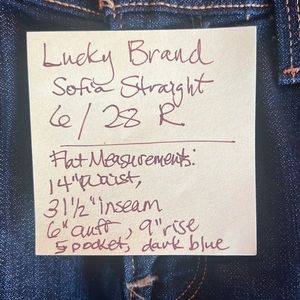 Lucky Brand
Sofia Straight
6/28 R
Flat Measurements:
14" Waist,
31 1/2" inseam
6" cuff, 9" rise
5 pocket, dark blue